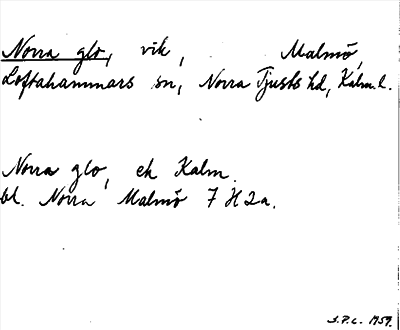 Norra glo, vik, Malmö,
Loftahammars sn, Norra Tjusts hd, Kalm. l.
Norra glo, ek Kalm.
bl. Norra Malmö 7 H 2a.
S.P.L. 1959.